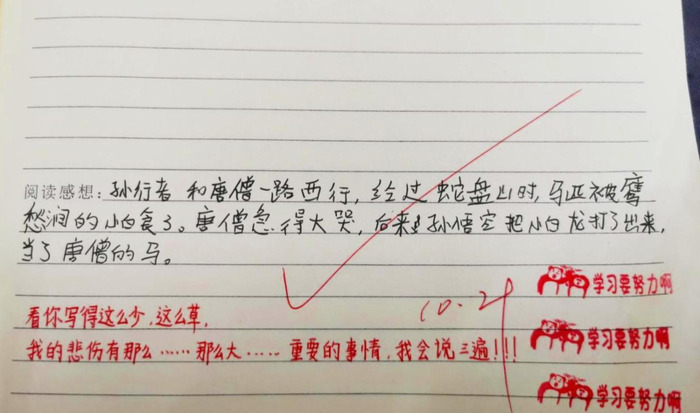 阅读感想:孙行者和唐僧一路西行,经过蛇盘山时,马匹被鹰
愁涧的小白食了。唐僧急得大哭,后来孙悟空把小白龙打了出来,
当了唐僧的马。
看你写得这么少,这么草,
我的悲伤有那么……那么大……重要的事情,我会说三遍!!!
10.21
学习要努力啊
学习要努力啊
学习要努力啊